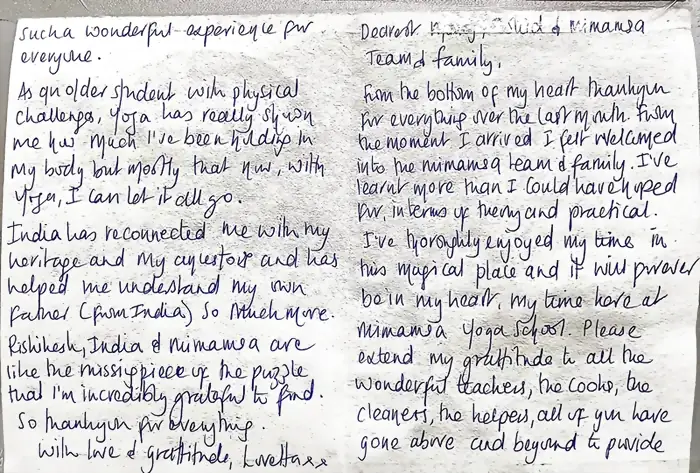 Dearest & mimamsa
Team & family,
From the bottom of my heart thankyou
for everything over the last month. From
the moment I arrived I felt welcomed
into the mimamsa team & family. I've
learnt more than I could have hoped
for, in terms of theory and practical.
I've thoroghly enjoyed my time in
this magical place and it will forever
be in my heart, my time here at
mimamsa Yoga School. Please
extend my gratitude to all the
wonderful teachers, the cooks, the
cleaners, the helpers, all of you have
gone above and beyond to provide
such a wonderful experience for
everyone.
As an older student with physical
challenges, Yoga has really shown
me how much I've been holding in
my body but mostly that now, with
Yoga, I can let it all go.
India has reconnected me with my
heritage and my ancestors and has
helped me understand my own
Father (from India) so much more.
Rishikesh, India & mimamsa are
like the missing piece of the puzzle
that I'm incredibly grateful to find.
So thankyou for everything.
With love & gratitude,